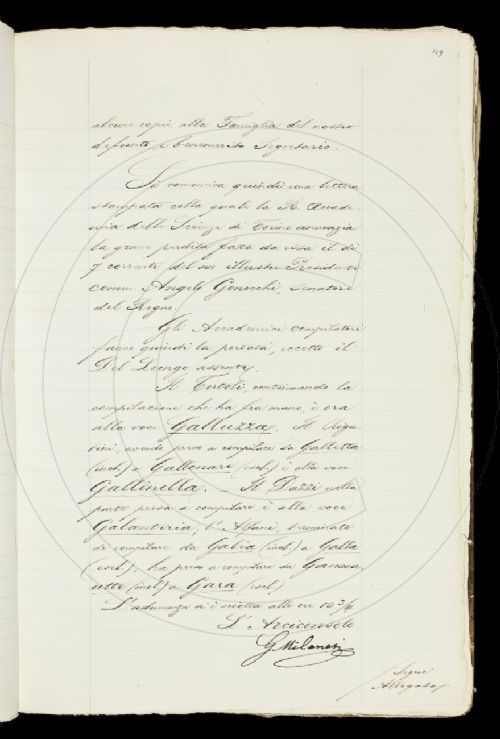 alcune copie alla Famiglia del nostro
defunto e benemerito Segretario.
Si comunica quindi una lettera
stampata colla quale la R. Accade-
mia delle Scienze di Torino annunzia
la grave perdita fatta da essa il dì
7 corrente del suo illustre Presidente
comm. Angelo Genocchi, senatore
del Regno.
Gli Accademici compilatori
fanno quindi la presa, eccetto il
Del Lungo assente.
Il Tortoli, continuando la
compilazione che ha fra mano, è ora
alla voce Galluzza. Il Rigu-
tini, avendo preso a compilare da Galletta
(incl.) a Gallonare (incl.) è alla voce
Gallinella. Il Dazzi nella
parte presa a compilare è alla voce
Galanteria. L'Alfani, terminato
di compilare da Gabia (incl.) a Galla
(escl.), ha preso a compilare da
(incl.) a Gara (escl.)
L'adunanza si è sciolta alle ore 10 3/4
L'Arciconsolo
G Milanesi
Segue
Allegato